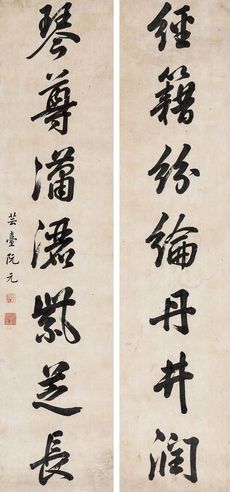 經籍紛綸丹井潤
琴尊瀟灑紫芝長
芸臺阮元